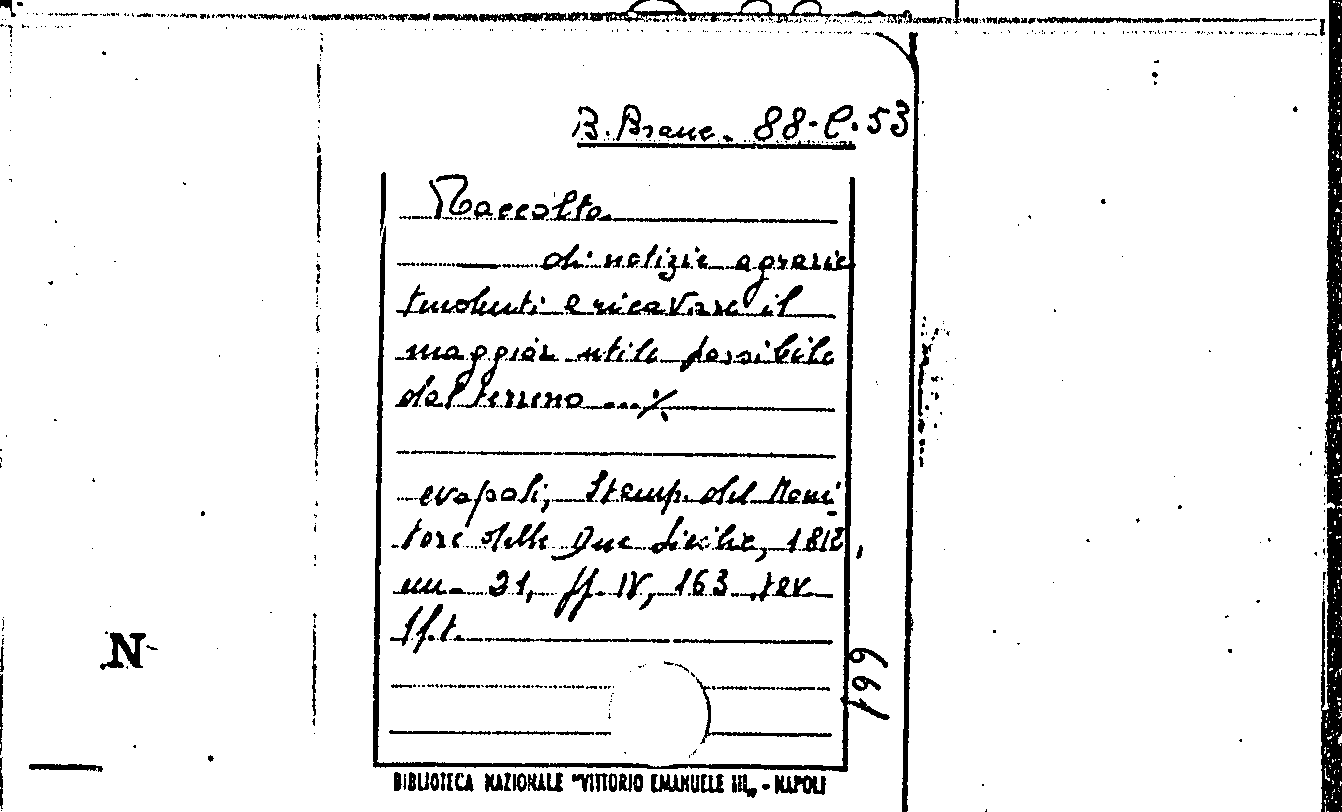 B. Branc. 88-C.53
Raccolta
di notizie agrarie
tendenti a ricavare il
maggior utile possibile
dal terreno ... ./.
Napoli, Stamp. del Moni-
tore delle Due Sicilie, 1812,
cm. 21, pp. IV, 163
1 f.t.
199
N
BIBLIOTECA NAZIONALE "VITTORIO EMANUELE III„ - NAPOLI